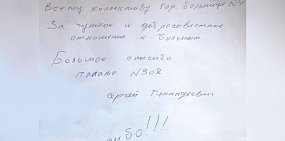 Всему коллективу Гор больницы №4
За чуткое и добросовестное
отношение к больным
Большое спасибо
палата №308
Сергей Геннадьевич